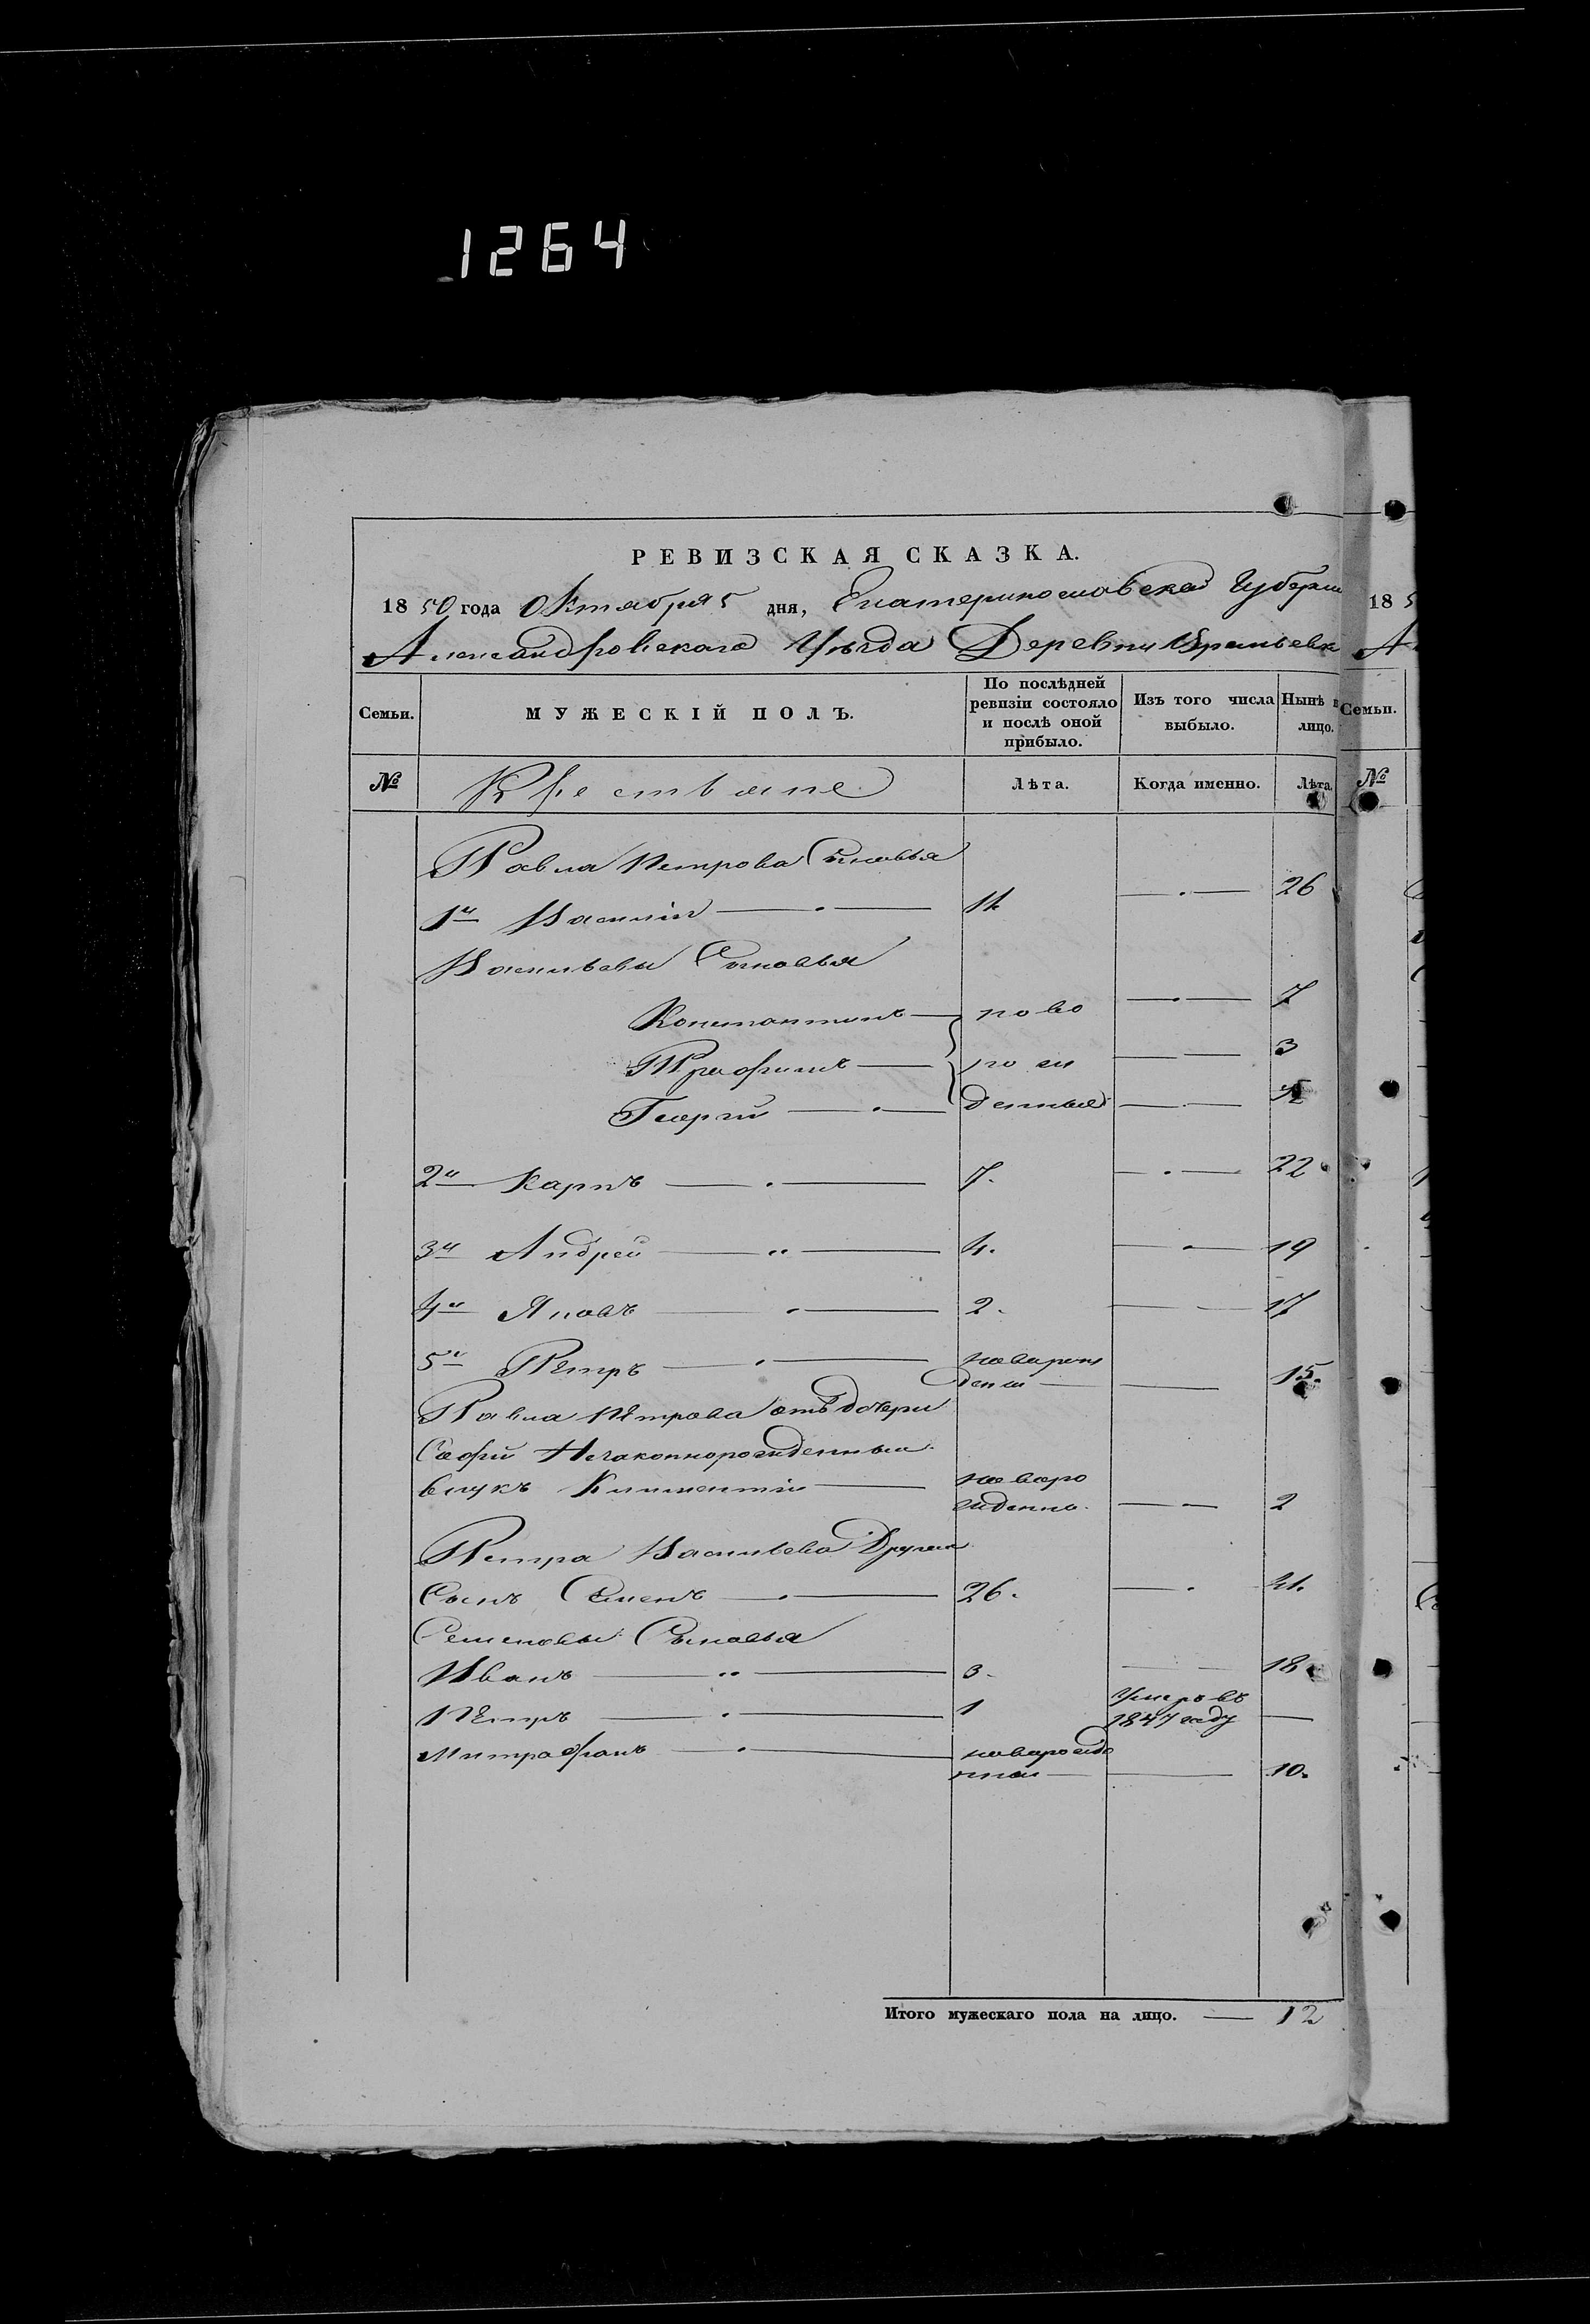 1264
РЕВИЗСКАЯ СКАЗКА.
1850 года Октября 5 дня, Екатеринославской Губерни
Александровскаго Уѣзда Деревни
Семьи. МУЖЕСКІЙ ПОЛЪ. По послѣдней ревизіи состояло и послѣ оной прибыло. Изъ того числа выбыло. Нынѣ на лицо.
№ Крестьяне Лѣта. Когда именно. Лѣта.
Павла Петрова Сыновья
1й Василій 11. 26
Васильевы Сыновья
Константинъ ново 7
Трофимъ рож 3
Георгій денные
2й Карпъ 7. 22
3й Андрей 4. 19
4й Яковъ 2. 17
5й Петръ новорож
денъ 15.
Павла Петрова отъ дочери
Софіи Незаконнорожденный
внукъ Климентій новоро
жденно. 2
Петра Васильева Другой
Сынъ Семенъ 26. 41.
Семеновы Сыновья
Иванъ 3. 18
Петръ 1 Умеръ въ
1847 году
Митрофанъ новорожде
нной 10.
Итого мужескаго пола на лицо. 12
185
А
Семьи.
№